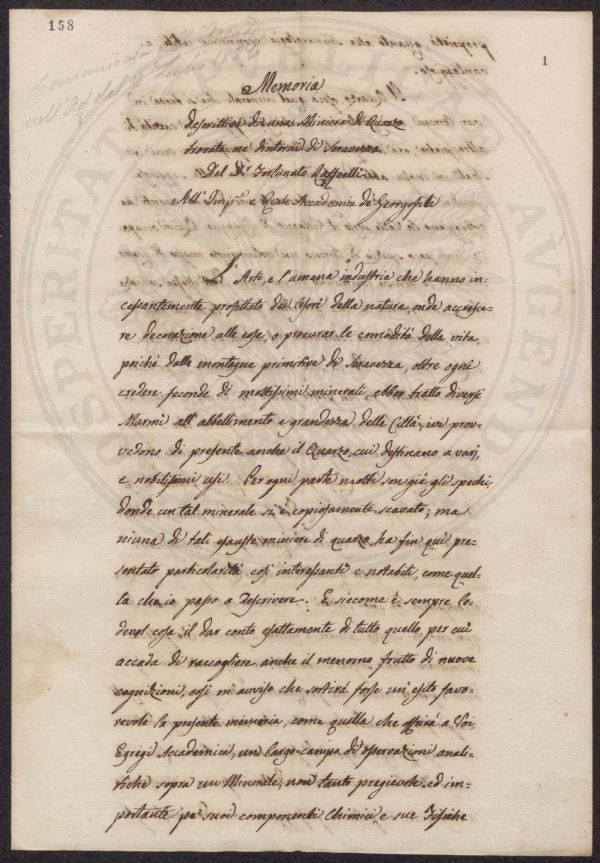 158
1
Comunicata nell'Ord.
nell'Ad. del Luglio
Memoria
descrittiva di una Miniera di Quarzo
trovata ne' dintorni di Seravezza
Del Dr. Fortunato Raffaelli
All' Imp. e Reale Accademia de' Georgofili
L' Arti, e l'umana industria che hanno in-
cessantemente profittato dei tesori della natura, onde accresce-
re decorazione alle cose, o procurar le comodità della vita,
poichè dalle montagne primitive di Seravezza, oltre ogni
credere feconde di moltissimi minerali, ebber tratto diversi
Marmi all' abbellimento e grandezza delle Città, ivi prov-
vedono di presente anche il Quarzo, cui destinano a varj,
e nobilissimi usi. Per ogni parte molti son già gli spechi,
donde un tal minerale si è copiosamente scavato; ma
niuna di tali esauste miniere di quarzo ha fin qui pre-
sentato particolarità così interessanti e notabili, come quel-
la che io passo a descrivere. E siccome è sempre lo-
devol cosa il dar conto esattamente di tutto quello, per cui
accada di raccogliere anche il menomo frutto di nuove
cognizioni, così m' avviso che sortirà forse un' esito favo-
revole la presente memoria, come quella che offrirà a Voi,
Egregi Accademici, un largo campo di osservazioni anali-
tiche sopra un Minerale, non tanto pregievole, ed im-
portante pe' suoi componenti Chimici e sue Fisiche
POSTERITATI AUGENDAE